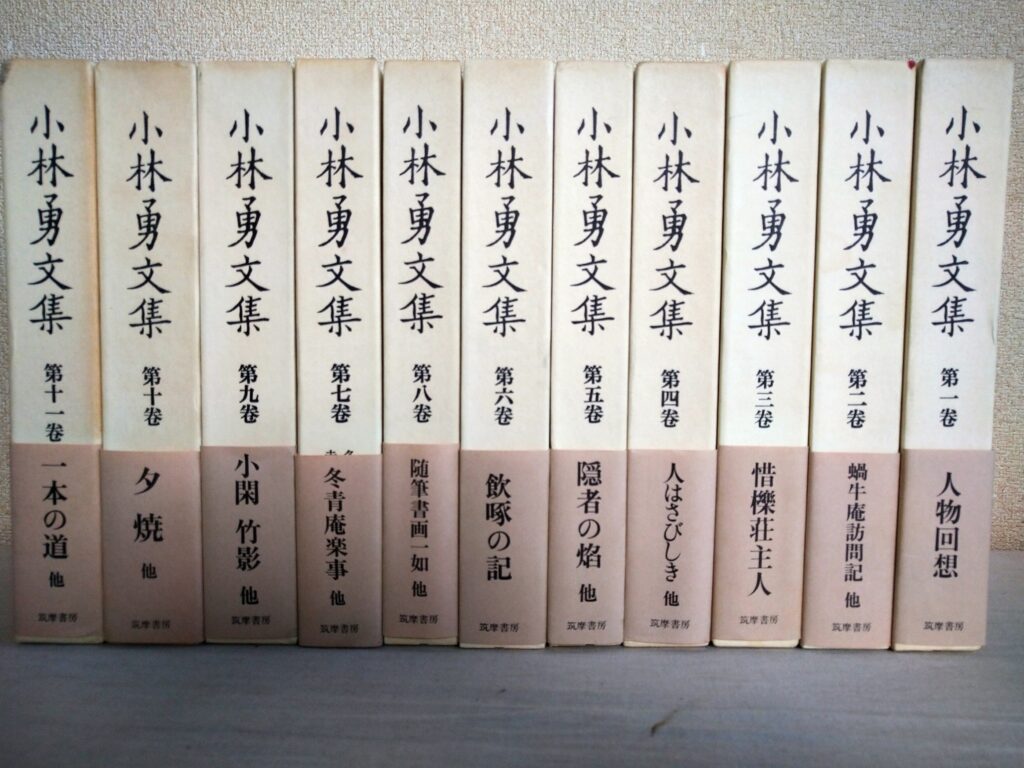 小林勇文集
第一卷
人物回想
筑摩書房
小林勇文集
第二卷
蝸牛庵訪問記 他
筑摩書房
小林勇文集
第三卷
惜櫟荘主人
筑摩書房
小林勇文集
第四卷
人はさびしき 他
筑摩書房
小林勇文集
第五卷
隠者の焰 他
筑摩書房
小林勇文集
第六卷
飲啄の記
筑摩書房
小林勇文集
第八卷
随筆書画一如 他
筑摩書房
小林勇文集
第七卷
冬青庵楽事 他
筑摩書房
小林勇文集
第九卷
小閑 竹影 他
筑摩書房
小林勇文集
第十卷
夕焼 他
筑摩書房
小林勇文集
第十一卷
一本の道 他
筑摩書房